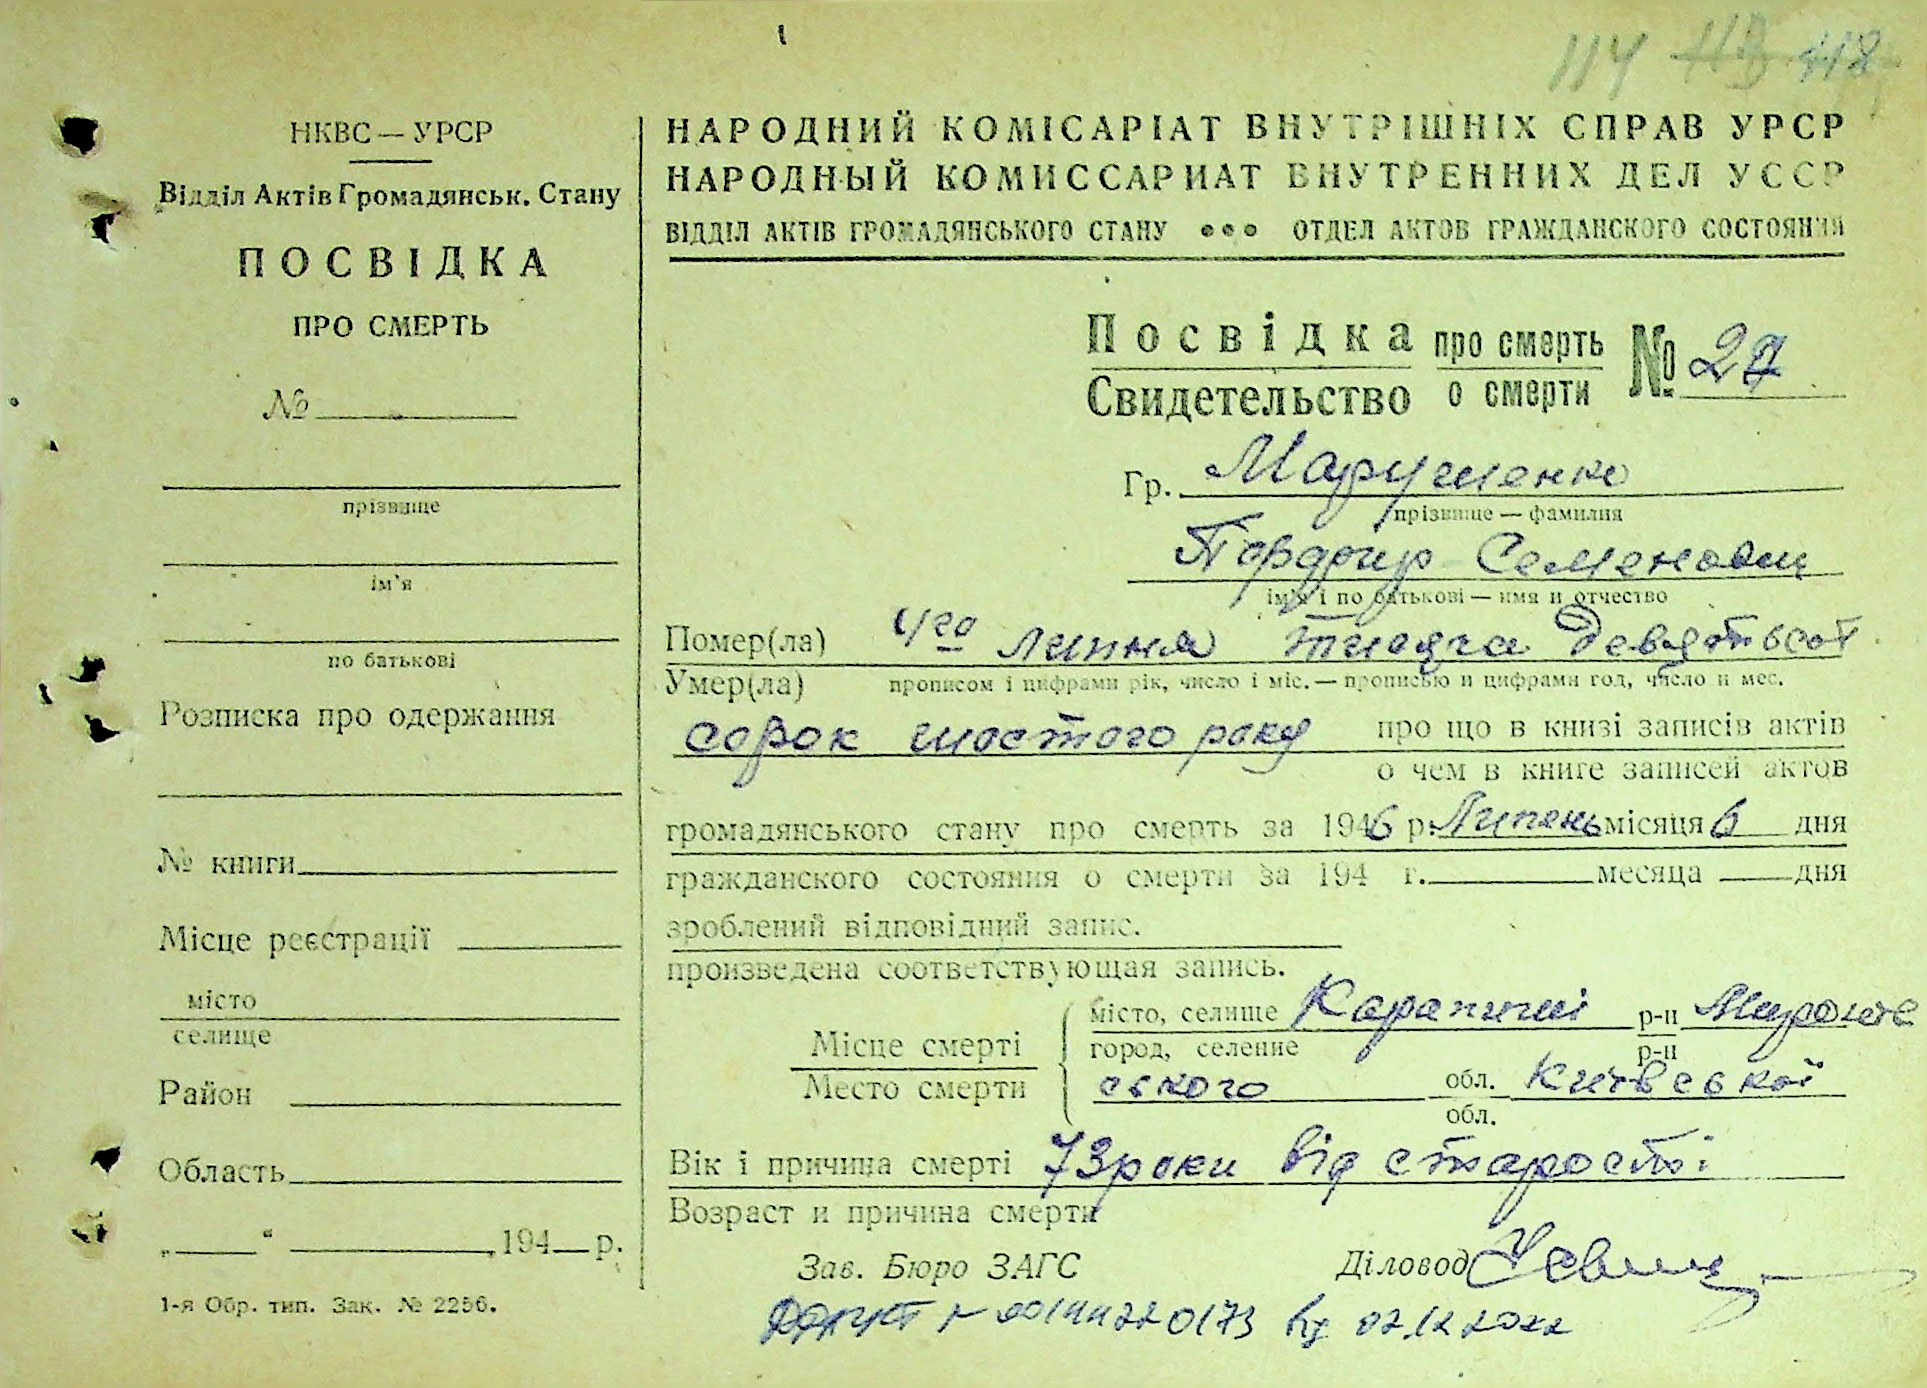 114 118
НКВС — УРСР
Відділ Актів Громадянськ. Стану
ПОСВІДКА
ПРО СМЕРТЬ
№
прізвище
ім'я
по батькові
Розписка про одержання
№ книги
Місце реєстрації
місто
селище
Район
Область
„ “ 194 р.
1-я Обр. тип. Зак. № 2256.
НАРОДНИЙ КОМІСАРІАТ ВНУТРІШНІХ СПРАВ УРСР
НАРОДНЫЙ КОМИССАРИАТ ВНУТРЕННИХ ДЕЛ УССР
ВІДДІЛ АКТІВ ГРОМАДЯНСЬКОГО СТАНУ ••• ОТДЕЛ АКТОВ ГРАЖДАНСКОГО СОСТОЯНИЯ
Посвідка про смерть № 27
Свидетельство о смерти
Гр. Марушенко
прізвище — фамилия
Порфир Семенович
ім'я і по батькові — имя и отчество
Помер(ла) 4го липня тисяча девятьсот
Умер(ла) прописом і цифрами рік, число і міс. — прописью и цифрами год, число и мес.
сорок шостого року про що в книзі записів актів
о чем в книге записей актов
громадянського стану про смерть за 1946 р. Липень місяця 6 дня
гражданского состояния о смерти за 194 г. месяца дня
зроблений відповідний запис.
произведена соответствующая запись.
місто, селище Карапиші р-н Миронів
Місце смерті город, селение р-н
Место смерти ського обл. Київської
обл.
Вік і причина смерті 73 роки від старості
Возраст и причина смерти
Зав. Бюро ЗАГС Діловод
N 00144220173 07.12.2022